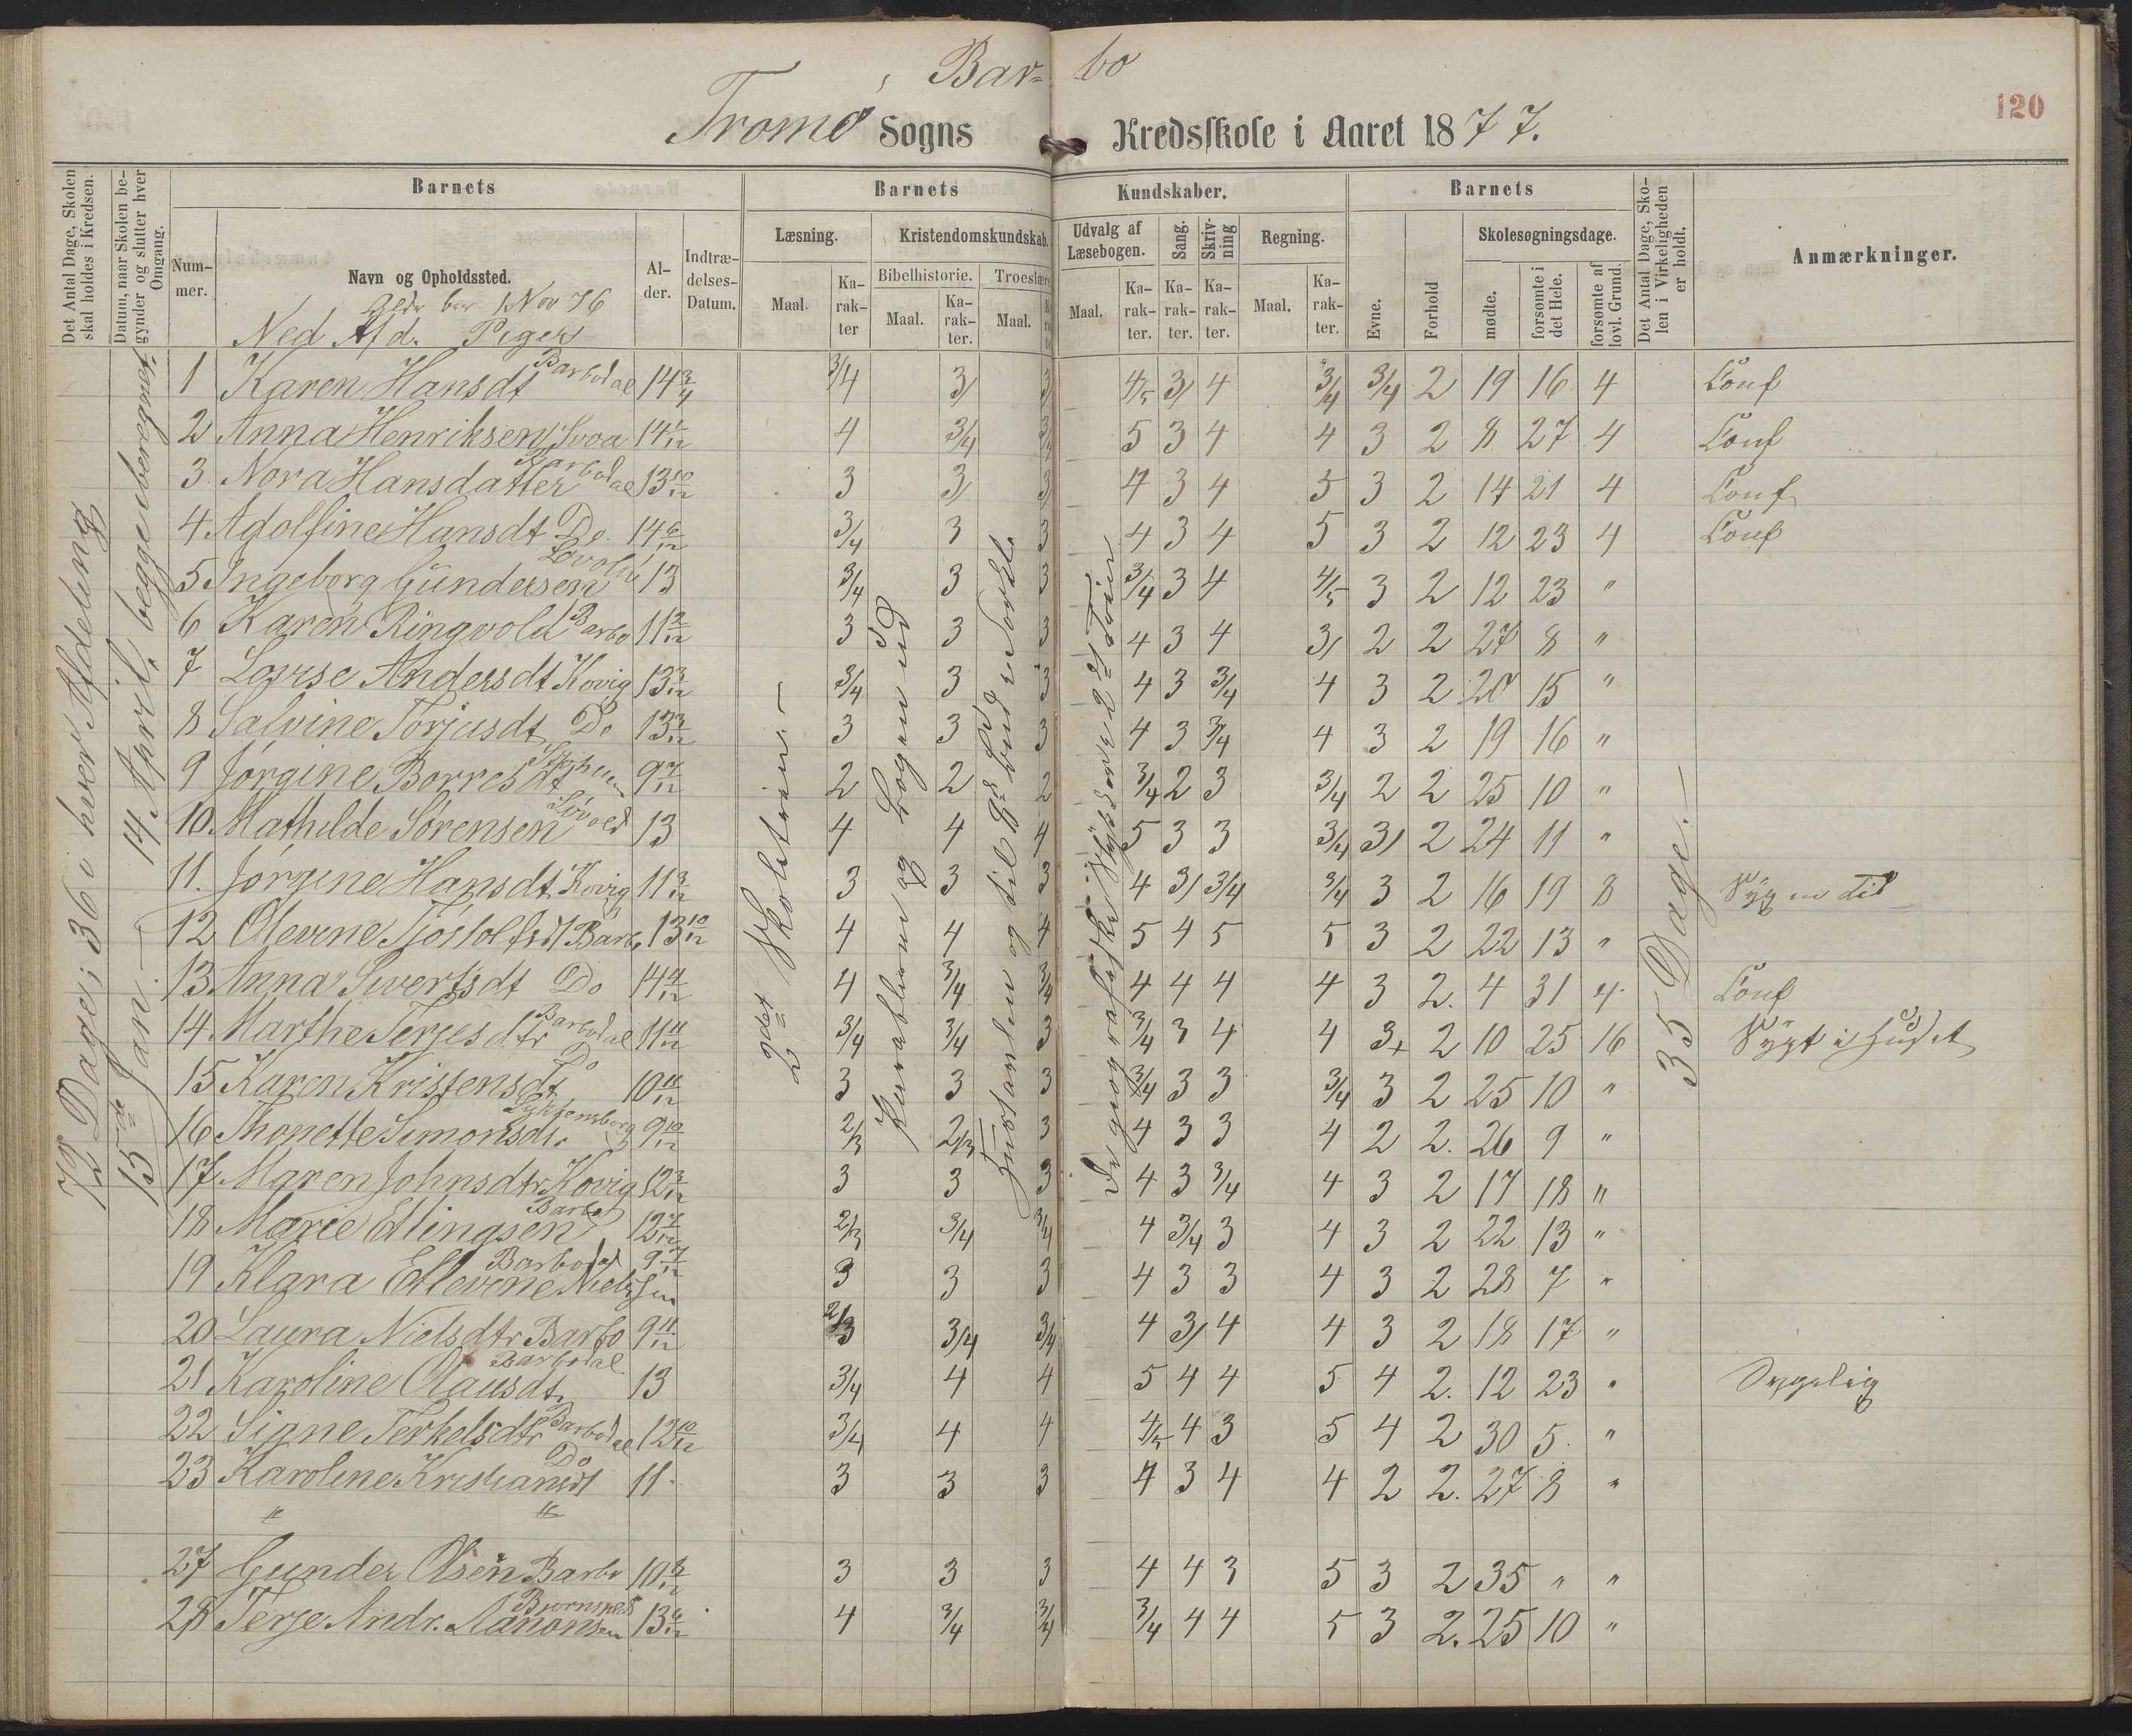 Bar= bo
120
Tromø Sogns Kredsskole i Aaret 1877.
Det Antal Dage, Skolen skal holdes i Kredsen.
Datum, naar Skolen begynder og slutter hver Omgang.
Barnets
Barnets
Kundskaber.
Barnets
Det Antal Dage, Skolen i Virkeligheden er holdt.
Anmærkninger.
Nummer.
Navn og Opholdssted.
Alder.
Indtrædelses-Datum.
Læsning.
Kristendomskundskab.
Udvalg af Læsebogen.
Sang.
Skrivning
Regning.
Evne.
Forhold
Skolesøgningsdage.
Bibelhistorie.
Troeslære
Maal.
Karakter
Maal.
Karakter.
Maal.
Maal.
Karakter.
Karakter.
Karakter.
Maal.
Karakter.
mødte.
forsømte i det Hele.
forsømte af lovl. Grund.
1 Nov 76
Ned Afd. Piger
72 Dage; 36 i hver Afdeling
15de Jan. — 14 April, begge iberegnet
2det Skoletrin —
35 Dage. —
1 Karen Hansdt Barbodal 14 3/4 3/4 3/ 3/ 4/5 3/ 4 3/4 3/4 2 19 16 4 Conf
2 Anna Henriksen 14 4 3/4 3/4 5 3 4 4 3 2 8 27 4 Conf
3 Nora Hansdatter Barbodal 13 10/12 3 3/ 3/ 4 3 4 5 3 2 14 21 4 Conf
4 Adolfine Hansdt Do. 14 6/12 3/4 3 3 4 3 4 5 3 2 12 23 4 Conf
5 Ingeborg Gundersen 13 3/4 3 3 3/4 3 4 4/5 3 2 12 23 "
6 Karen Ringvold Barbo 11 3/12 3 3 3 4 3 4 3/ 2 2 27 8 "
7 Lovise Andersdt Kovig 13 3/12 3/4 3 3 4 3 3/4 4 3 2 20 15 "
8 Salvine Torjusdt Do 13 3/12 3 3 3 4 3 3/4 4 3 2 19 16 "
9 Jørgine Borresdt 9 7/12 2 2 2 3/4 2 3 3/4 2 2 25 10 "
10. Mathilde Sørensen 13 4 4 4 5 3 3 3/4 3/ 2 24 11 "
11. Jørgine Hansdt Kovig 11 3/12 3 3 3 4 3/ 3/4 3/4 3 2 16 19 8 Syg en Tid
12 Olevine Tjostolfsdt Barb. 13 10/12 4 4 4 5 4 5 5 3 2 22 13 "
13 Anna Sivertsdt Do 14 4/12 4 3/4 3/4 4 4 4 4 3 2. 4 31 4 Conf
14 Marthe Terjesdtr Barbodal 11 11/12 3/4 3/4 3 3/4 3 4 4 3+ 2 10 25 16 Sygt i Huset
15 Karen Kristensdt Do 10 11/12 3 3 3 3/4 3 3 3/4 3 2 25 10 "
16 Thonette Simonsdtr. 9 10/12 2/3 2/3 3 4 3 3 4 2 2. 26 9 "
17 Maren Johnsdtr Kovig 12 3/12 3 3 3 4 3 3/4 4 3 2 17 18 "
18 Marie Edlingsen 12 7/12 2/3 3/4 3/4 4 3/4 3 4 3 2 22 13 "
19 Klara Edlevine Nielsen Barbodal 9 7/12 3 3 3 4 3 3 4 3 2 28 7 "
20 Laura Nielsdtr Barbo 9 11/12 2/3 3/4 3/4 4 3/ 4 4 3 2 18 17 "
21 Karoline Olausdt. Barbodal 13 3/4 4 4 5 4 4 5 4 2. 12 23 " Sygelig
22 Signe Terkelsdtr Barbodal 12 10/12 3/4 4 4 4/5 4 3 5 4 2 30 5. "
23 Karoline Kristiansdt Do 11 3 3 3 4 3 4 4 2 2. 27 8 "
" "
27 Gunder Olsen Barbo 10 8/12 3 3 3 4 4 3 5 3 2 35 " "
28 Terje Andr. Aanonsen 13 6/12 4 3/4 3/4 3/4 4 4 5 3 2. 25 10 "